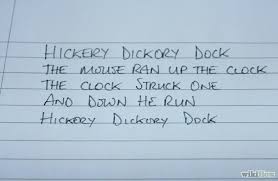 HICKERY DICKORY DOCK
THE MOUSE RAN UP THE CLOCK
THE CLOCK STRUCK ONE
AND DOWN HE RUN
HICKERY DICKORY DOCK
wikiHow